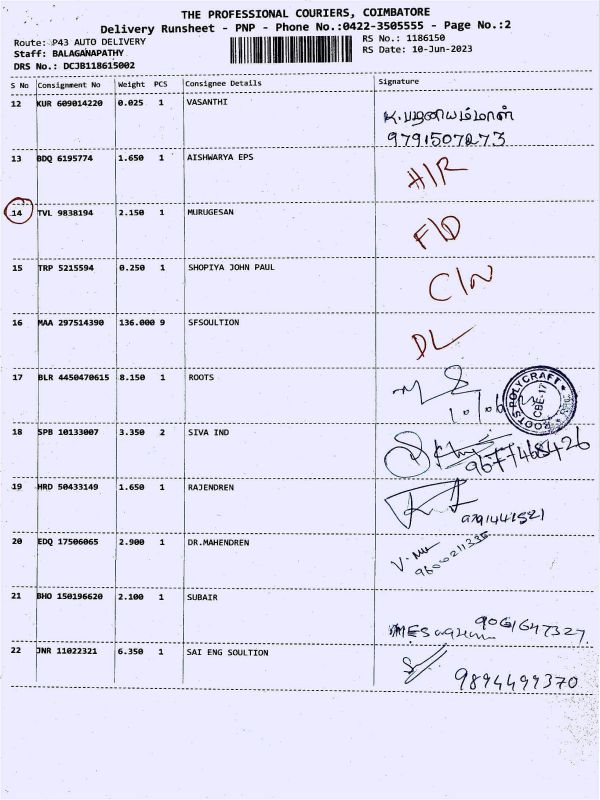 THE PROFESSIONAL COURIERS, COIMBATORE
Delivery Runsheet - PNP - Phone No.:0422-3505555 - Page No.:2
Route: P43 AUTO DELIVERY
RS No.: 1186150
Staff: BALAGANAPATHY
RS Date: 10-Jun-2023
DRS No.: DCJB118615002
S No Consignment No Weight PCS Consignee Details Signature
12 KUR 609014220 0.025 1 VASANTHI க.பழனியம்மாள்
9791507273
13 BDQ 6195774 1.650 1 AISHWARYA EPS H/R
14 TVL 9838194 2.150 1 MURUGESAN F/D
15 TRP 5215594 0.250 1 SHOPIYA JOHN PAUL C/N
16 MAA 297514390 136.000 9 SFSOULTION DL
17 BLR 4450470615 8.150 1 ROOTS
ROOTS POLYCRAFT CBE-17
18 SPB 10133007 3.350 2 SIVA IND
9677468426
19 HRD 50433149 1.650 1 RAJENDREN
9791441521
20 EDQ 17506065 2.900 1 DR.MAHENDREN
9600211336
21 BHO 150196620 2.100 1 SUBAIR
9061647327
22 JNR 11022321 6.350 1 SAI ENG SOULTION
9894499370